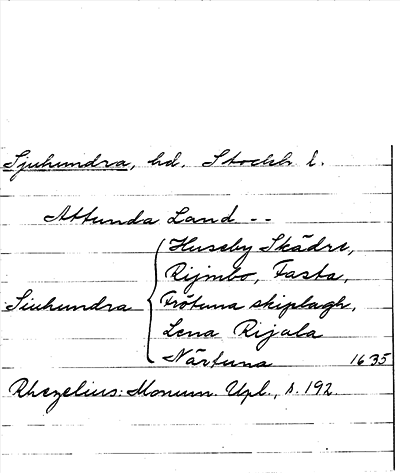 Sjuhundra, hd. Stockh l.
Attunda Land --
Huseby Skädre,
Rijmbo, Fasta,
Siuhundra
Frötuna skiplagh,
Lena Rijala
Närtuna 1635
Rhezelius: Monum. Upl., s. 192.